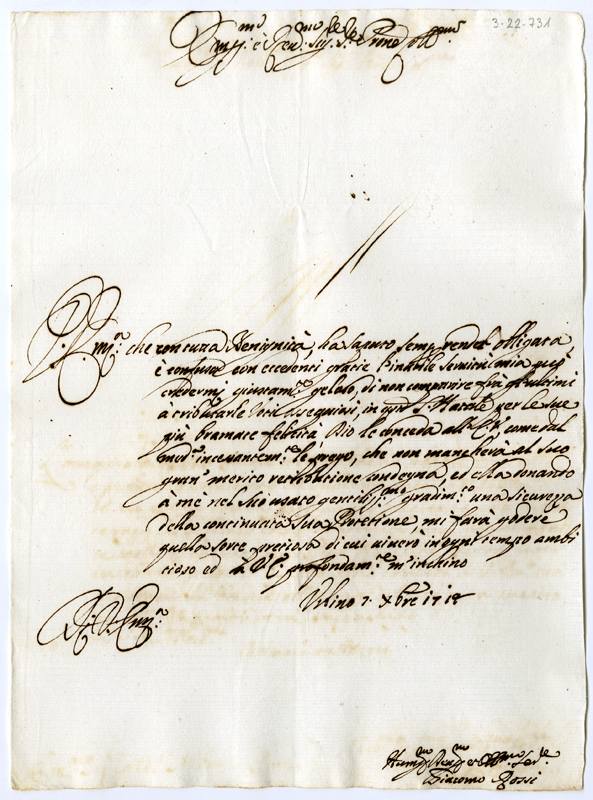 3-22-731
Em.mo e Rev. Sig.r Sig.r Prone Coll.mo
V. Em.a che con tutta Benignità, ha saputo sempre render obligata,
è confusa con eccedenti gracie l'inabile servitù mia può
credermi giustam.te geloso, di non comparire frà gl'ultimi
à tributarle ossequiosi, in questo S. Natale per le sue
più bramate felicità. Dio le conceda all'E. V. come dal
med.mo incessantem.te le prego, che non mancherà al suo
gran merito retributione condegna, ed ella donando
à mè nel suo usato gentiliss.mo gradim.to una sicurezza
della continuata sua Protettione, mi farà godere
quella sorte pretiosa di cui viverò in ogni tempo ambi
tioso ed à V. E. profondam.te m'inchino
Urbino 7. Xbre 1718
Di V. Em.a
Hum.mo Dev.mo et Obl.mo Ser.re
Giacomo Rossi